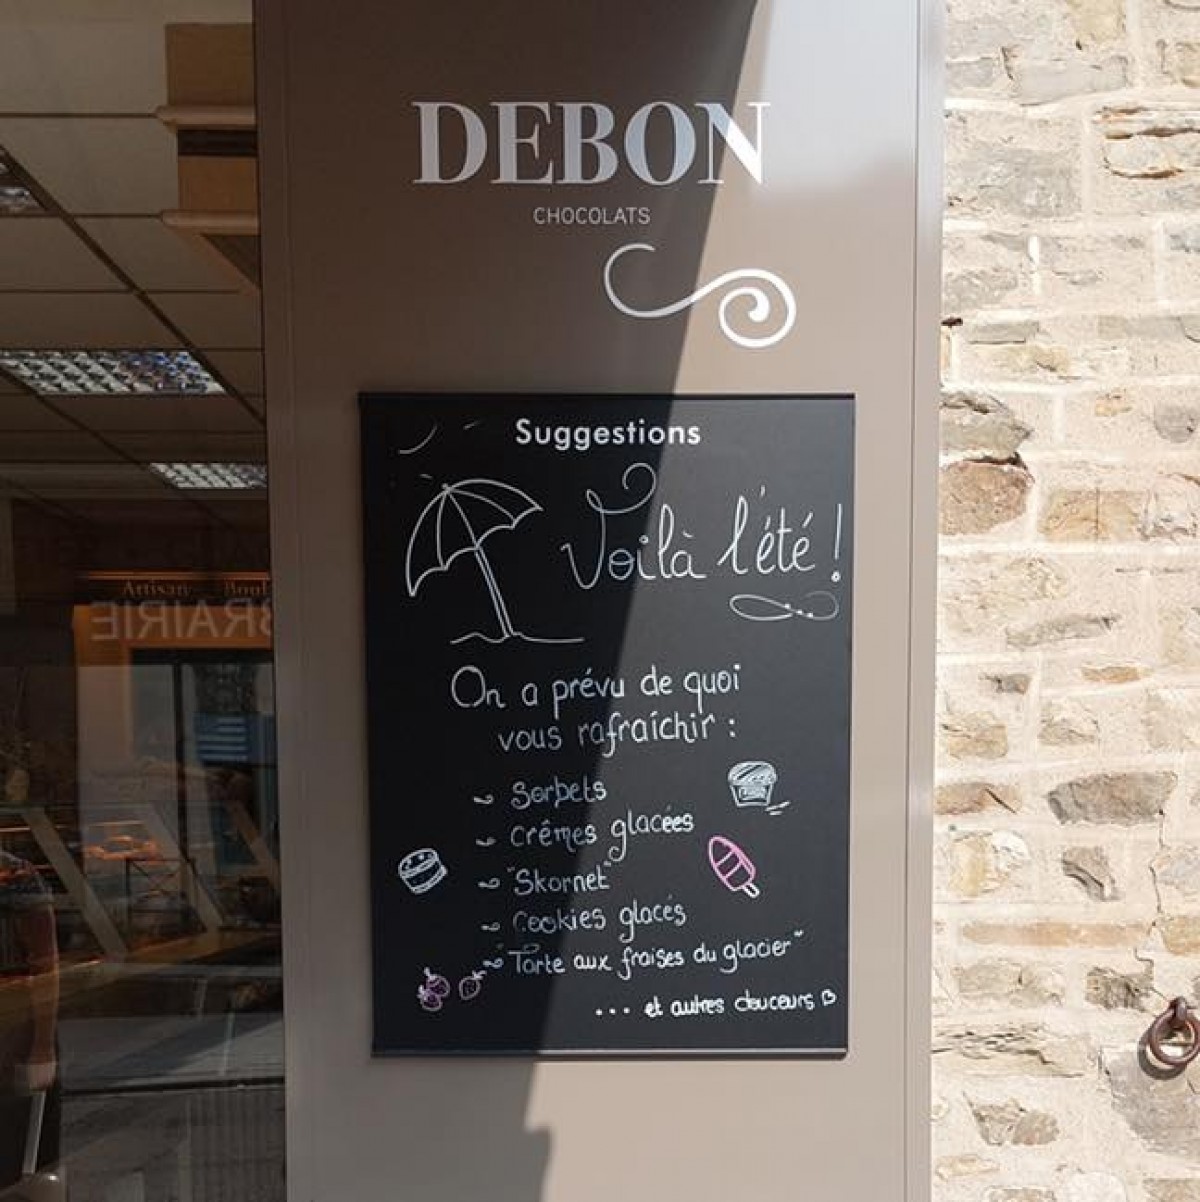 DEBON
CHOCOLATS
Suggestions
Voilà l'été !
On a prévu de quoi
vous rafraîchir :
Sorbets
Crêmes glacées
"Skornet"
Cookies glacés
"Tarte aux fraises du glacier"
... et autres douceurs
Artisan Boul
BRAIRIE